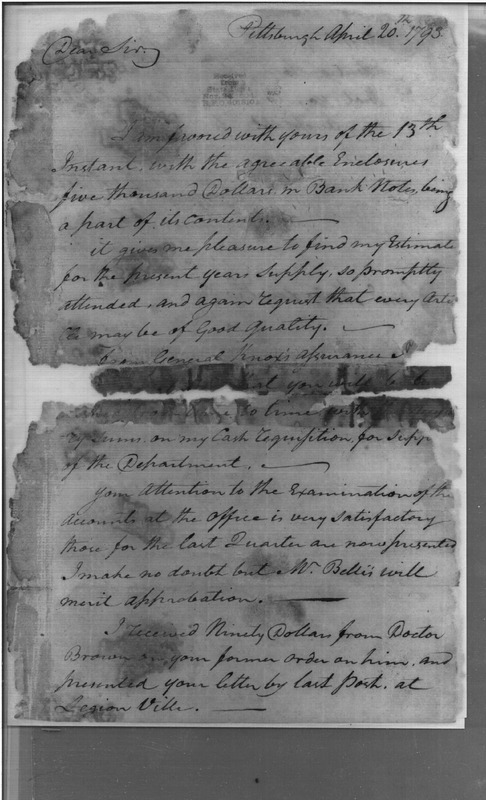 Pittsburgh April 20.th 1793.
Dear Sir,
I am favored with yours of the 13th
Instant, with the agreeable Enclosures
five thousand Dollars in Bank Notes, being
a part of its contents.
it gives me pleasure to find my Estimat
for the present years Supply, so promptly
attended, and again request that every Arti
may be of Good Quality.
From General Knox's assurance I
that you will be
time to time with
Sums on my Cash requisition, for Supp
of the Department.
your Attention to the Examination of the
accounts at the office is very satisfactory
those for the last Quarter are now presented
I make no doubt but Mr. Bellis will
merit approbation.
I received Ninety Dollars from Doctor
Brown on your former order on him, and
presented your letter by last Post. at
Legion Ville.